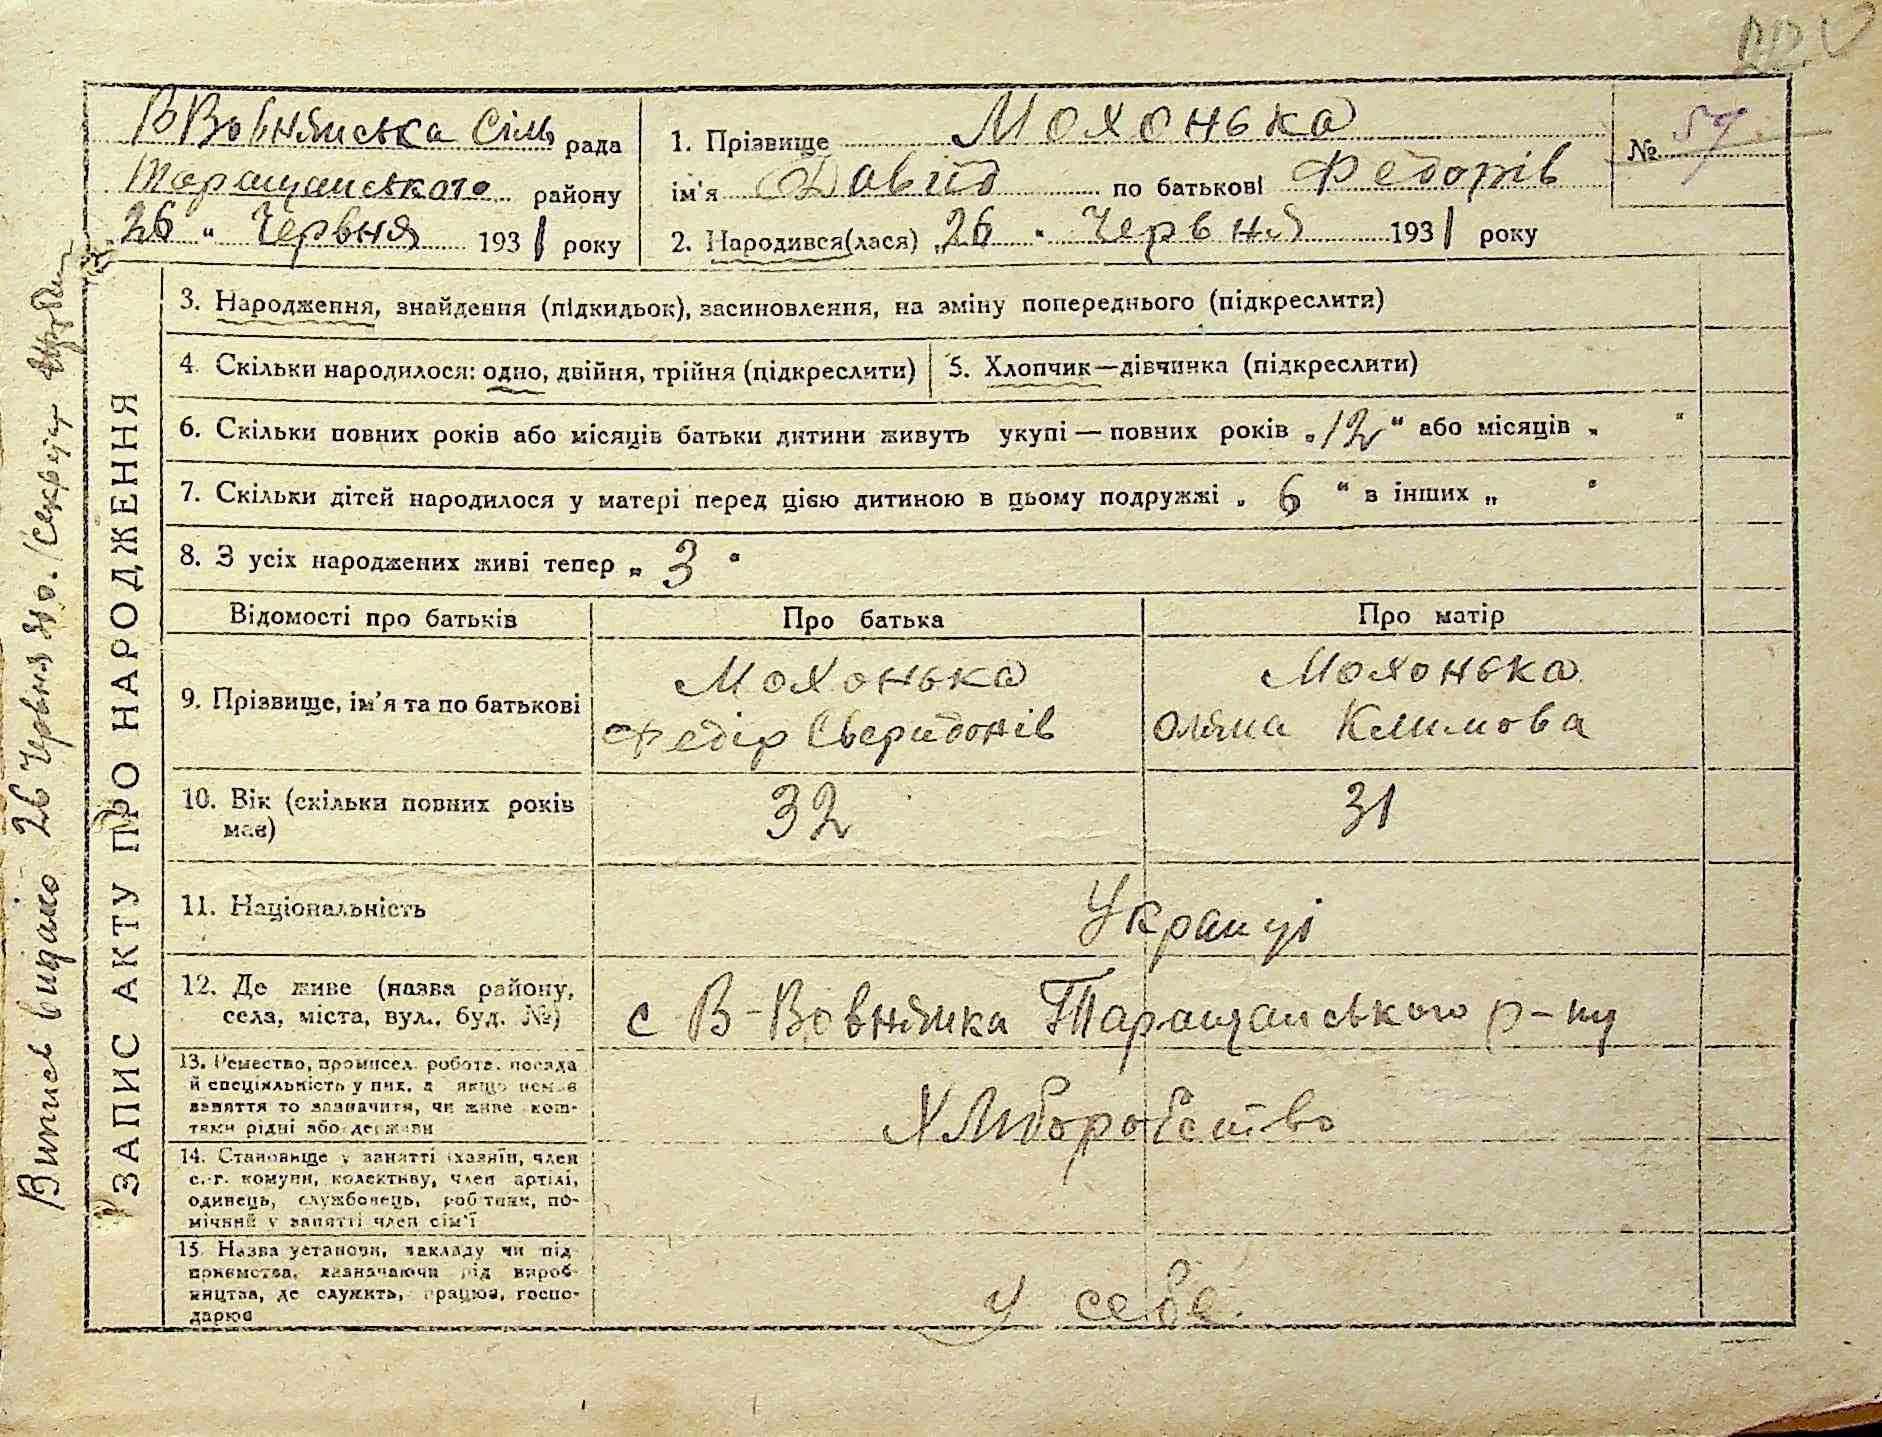 В Вовнянська Сіль рада
Таращанського району
26 " Червня 1931 року
1. Прізвище Мохонька
ім'я Давид по батькові Федорів
2. Народився(лася) „26 " Червня 1931 року
№ 57
3. Народження, знайдення (підкидьок), засиновлення, на зміну попереднього (підкреслити)
4. Скільки народилося: одно, двійня, трійня (підкреслити)
5. Хлопчик—дівчинка (підкреслити)
6. Скільки повних років або місяців батьки дитини живуть укупі — повних років „12" або місяців „ "
7. Скільки дітей народилося у матері перед цією дитиною в цьому подружжі „ 6 " в інших „ "
8. З усіх народжених живі тепер „ 3 "
Відомості про батьків
Про батька
Про матір
9. Прізвище, ім'я та по батькові
Мохонька
Федір Сверидонів
Мохонька
Оляна Климова
10. Вік (скільки повних років
має)
32
31
11. Національність
Украінці
12. Де живе (назва району,
села, міста, вул., буд. №)
с В-Вовнянка Таращанського р-ну
13. Ремество, промисел, робота, посада
й спеціяльність у них, а якщо немає
заняття то зазначити, чи живе кош-
тами рідні або держави
Хліборобство
14. Становище у занятті (хазяїн, член
с.-г. комуни, колективу, член артілі,
одинець, службовець, робітник, по-
мічний у занятті член сім'ї
15. Назва установи, закладу чи під-
приємства, зазначаючи рід вироб-
ництва, де служить, працює, госпо-
дарює
у себе.
ЗАПИС АКТУ ПРО НАРОДЖЕННЯ
Випись видано 26 Червня